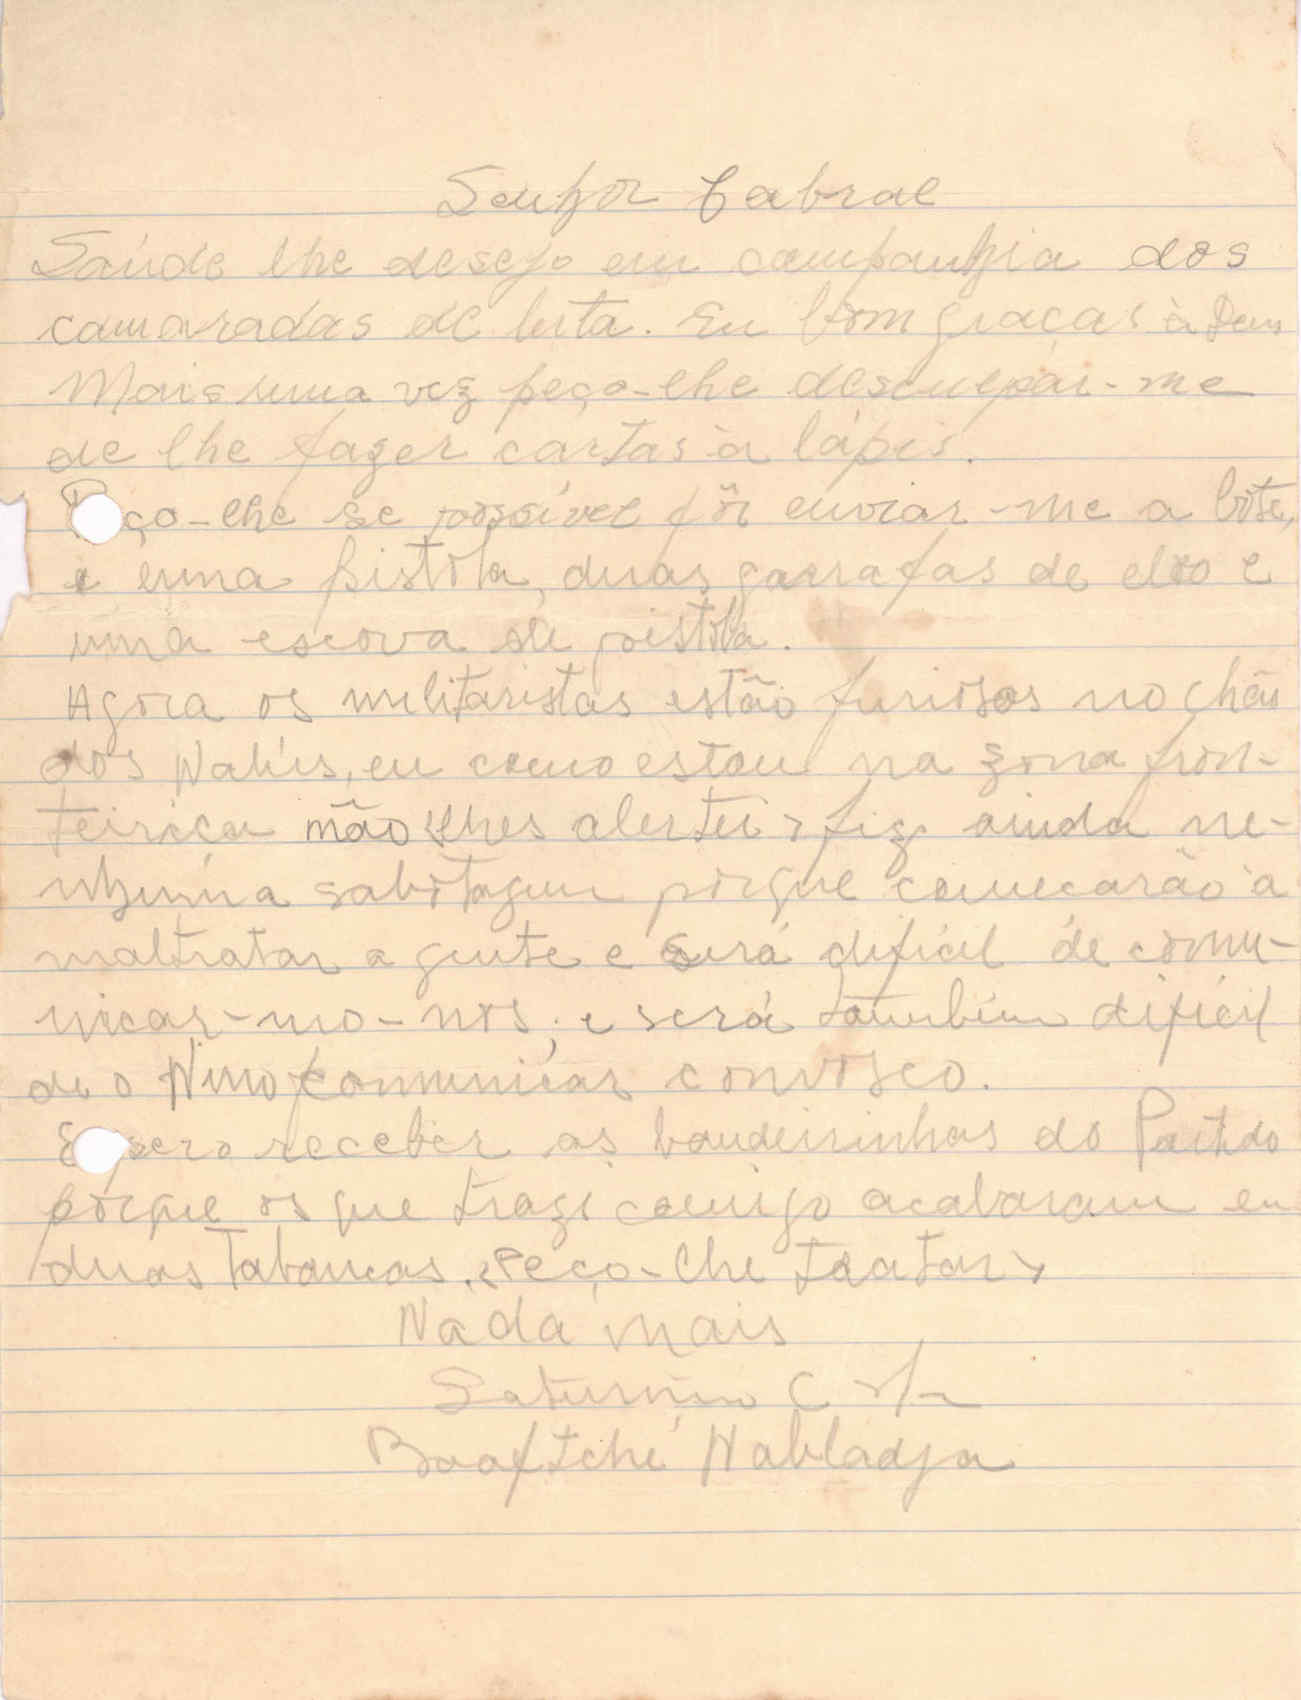 Senhor Cabral
Saúde lhe desejo em companhia dos
camaradas de luta. Eu bom graças à Deus
Mais uma vez peço-lhe desculpar-me
de lhe fazer cartas à lápis.
Peço-lhe se possível fôr enviar-me a bota,
e uma pistola, duas garrafas de eleo e
uma escova de pistola.
Agora os militaristas estão furiosos no chão
dos Nalús, eu como estou na zona fron-
teiriça não lhes alertei, fiz ainda ne-
nhuma sabotagem porque começarão à
maltratar a gente e será difícil de comu-
nicar-mo-nos, e será também difícil
de o Nino comunicar convosco.
Espero receber as bandeirinhas do Partido
porque os que traze comigo acabaram em
duas Tabancas. Peço-lhe tratar,
Nada mais
Saturnino C
Boaftché Nabladja